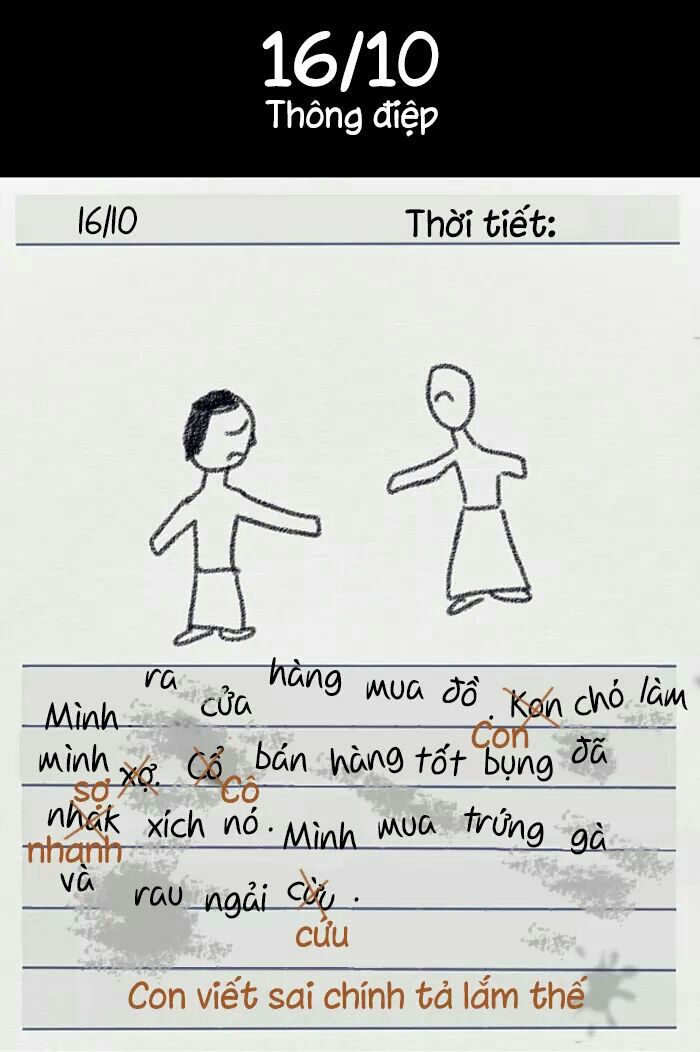 16/10
Thông điệp
16/10 Thời tiết:
Mình ra cửa hàng mua đồ. Kon chó làm
Con
mình xợ. Cổ bán hàng tốt bụng đã
sợ Cô
nhak xích nó. Mình mua trứng gà
nhanh
và rau ngải cừu.
cứu
Con viết sai chính tả lắm thế